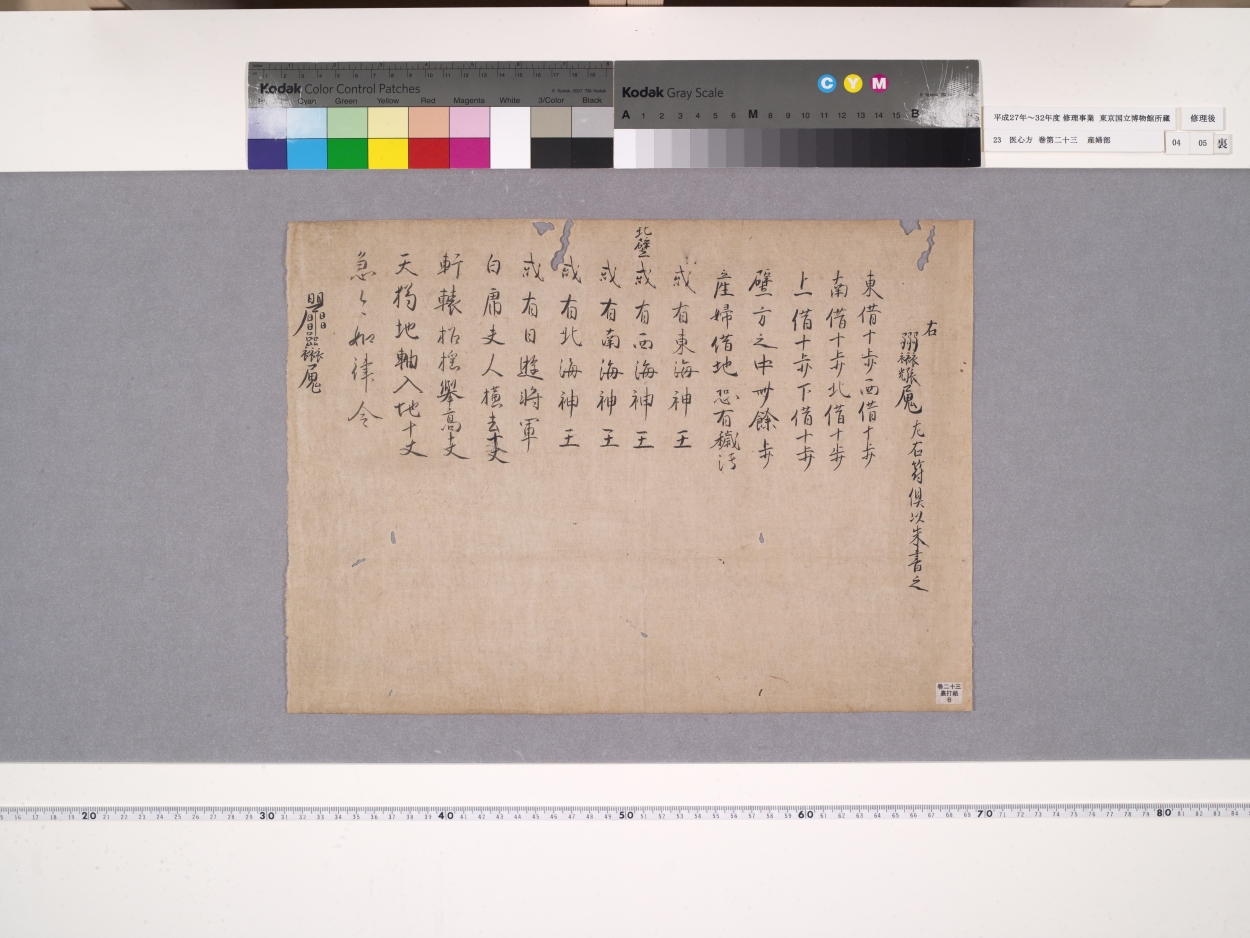 Kodak Color Control Patches
Cyan Green Yellow Red Magenta White 3/Color Black
Kodak Gray Scale
C Y M
A 1 2 3 4 5 6 M 8 9 10 11 12 13 14 15 B
平成27年～32年度 修理事業 東京国立博物館所蔵
修理後
23 医心方 巻第二十三 産婦部
04 05 裏
右
左右符俱以朱書之
東借十步西借十步
南借十步北借十步
上借十步下借十步
壁方之中卌餘步
産婦借地恐有穢汚
或有東海神王
或有西海神王
北壁
或有南海神王
或有北海神王
或有日遊將軍
白虎夫人橫去十丈
軒轅招搖擧高十丈
天狗地軸入地十丈
急々如律令
巻二十三
裏打紙
6
20 30 40 50 60 70 80